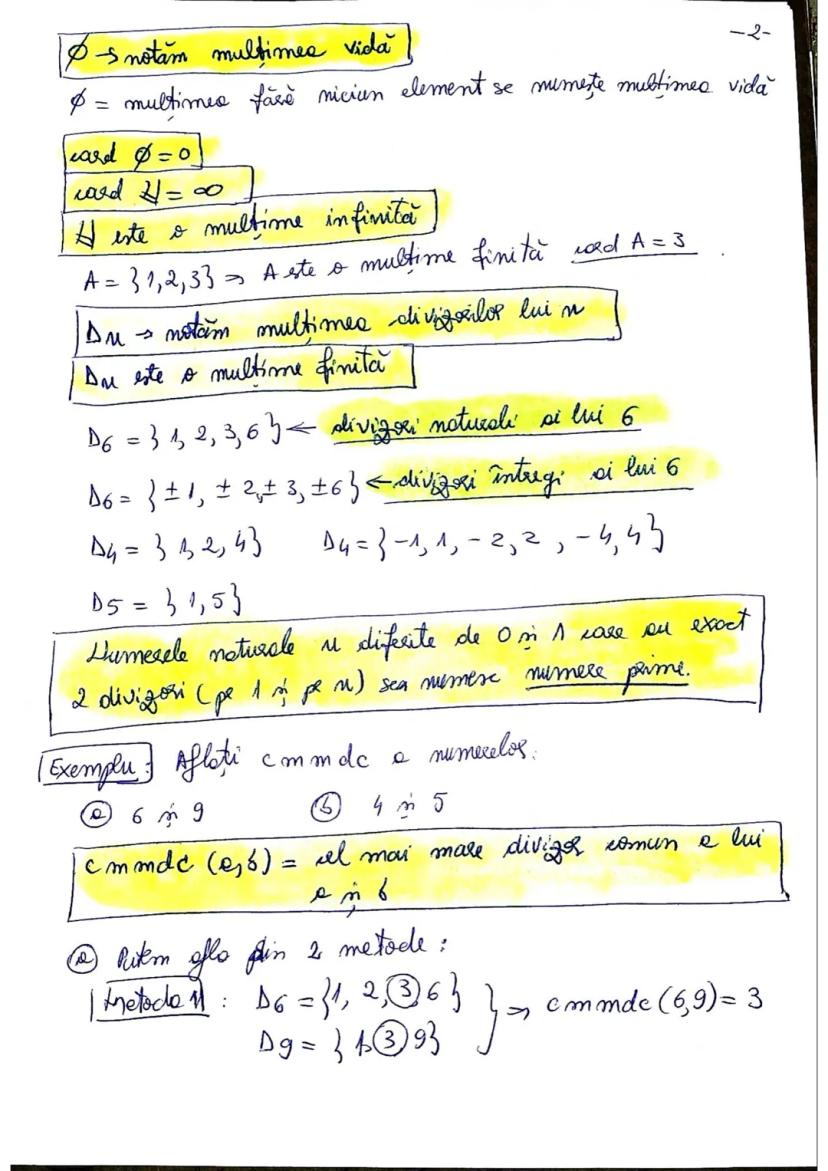 -2-
∅ → notăm mulțimea vidă
∅ = mulțimea fără niciun element se numește mulțimea vidă
card ∅ = 0
card ℕ = ∞
ℕ este o mulțime infinită
A = {1,2,3} ⇒ A este o mulțime finită card A = 3
Dn → notăm mulțimea divizorilor lui n
Dn este o mulțime finită
D6 = {1, 2, 3, 6} ← divizori naturali ai lui 6
D6 = {±1, ±2, ±3, ±6} ← divizori întregi ai lui 6
D4 = {1, 2, 4} D4 = {-1, 1, -2, 2, -4, 4}
D5 = {1, 5}
Numerele naturale n diferite de 0 și 1 care au exact
2 divizori (pe 1 și pe n) se numesc numere prime.
Exemplu: Aflați cmmdc a numerelor:
a) 6 și 9 b) 4 și 5
cmmdc (a,b) = cel mai mare divizor comun a lui
a și b
a) Putem afla prin 2 metode:
Metoda 1: D6 = {1, 2, 3, 6} } ⇒ cmmdc (6,9) = 3
D9 = {1, 3, 9}